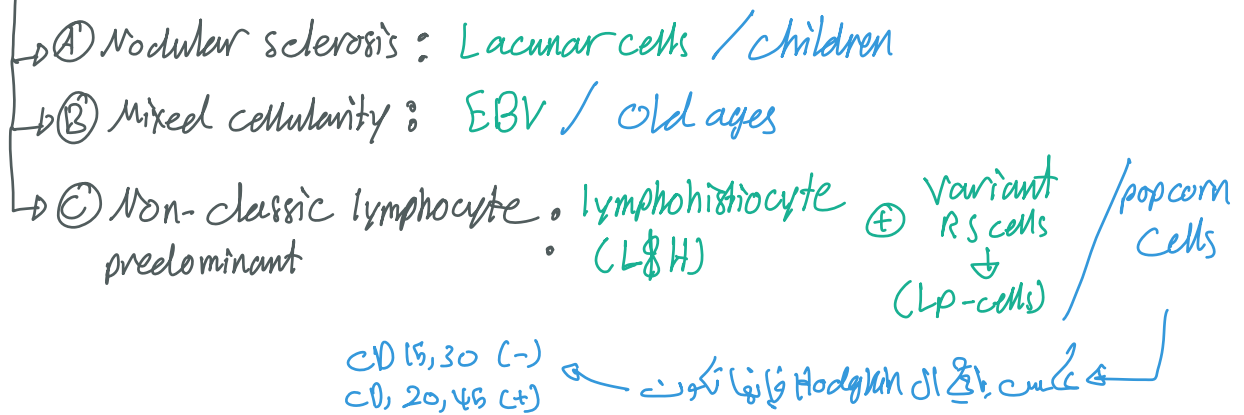 Ⓐ Nodular sclerosis : Lacunar cells / children
Ⓑ Mixed cellularity : EBV / old ages
Ⓒ Non-classic lymphocyte predominant : lymphohistiocyte (L&H) ⊕ Variant RS cells ↓ (LP-cells) / popcorn cells
عكس باقي ال Hodgkin فإنها تكون
CD 15, 30 (-)
CD, 20, 45 (+)